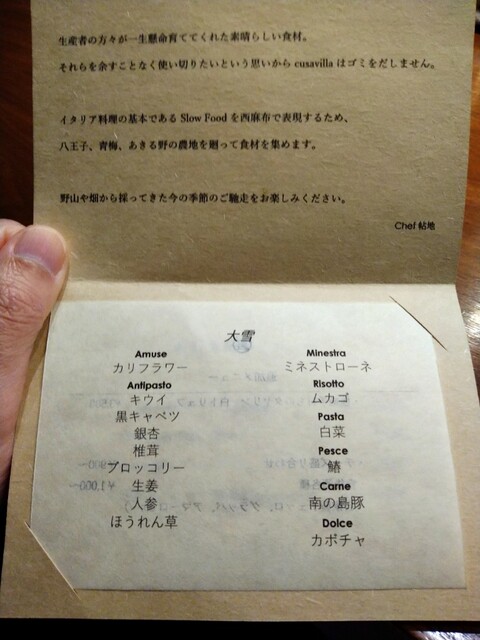 生産者の方々が一生懸命育ててくれた素晴らしい食材。
それらを余すことなく使い切りたいという思いから cusavilla はゴミをだしません。
イタリア料理の基本である Slow Food を西麻布で表現するため、
八王子、青梅、あきる野の農地を廻って食材を集めます。
野山や畑から採ってきた今の季節のご馳走をお楽しみください。
Chef 帖地
大雪
Amuse
カリフラワー
Antipasto
キウイ
黒キャベツ
銀杏
椎茸
ブロッコリー
生姜
人参
ほうれん草
Minestra
ミネストローネ
Risotto
ムカゴ
Pasta
白菜
Pesce
鰆
Carne
南の島豚
Dolce
カボチャ